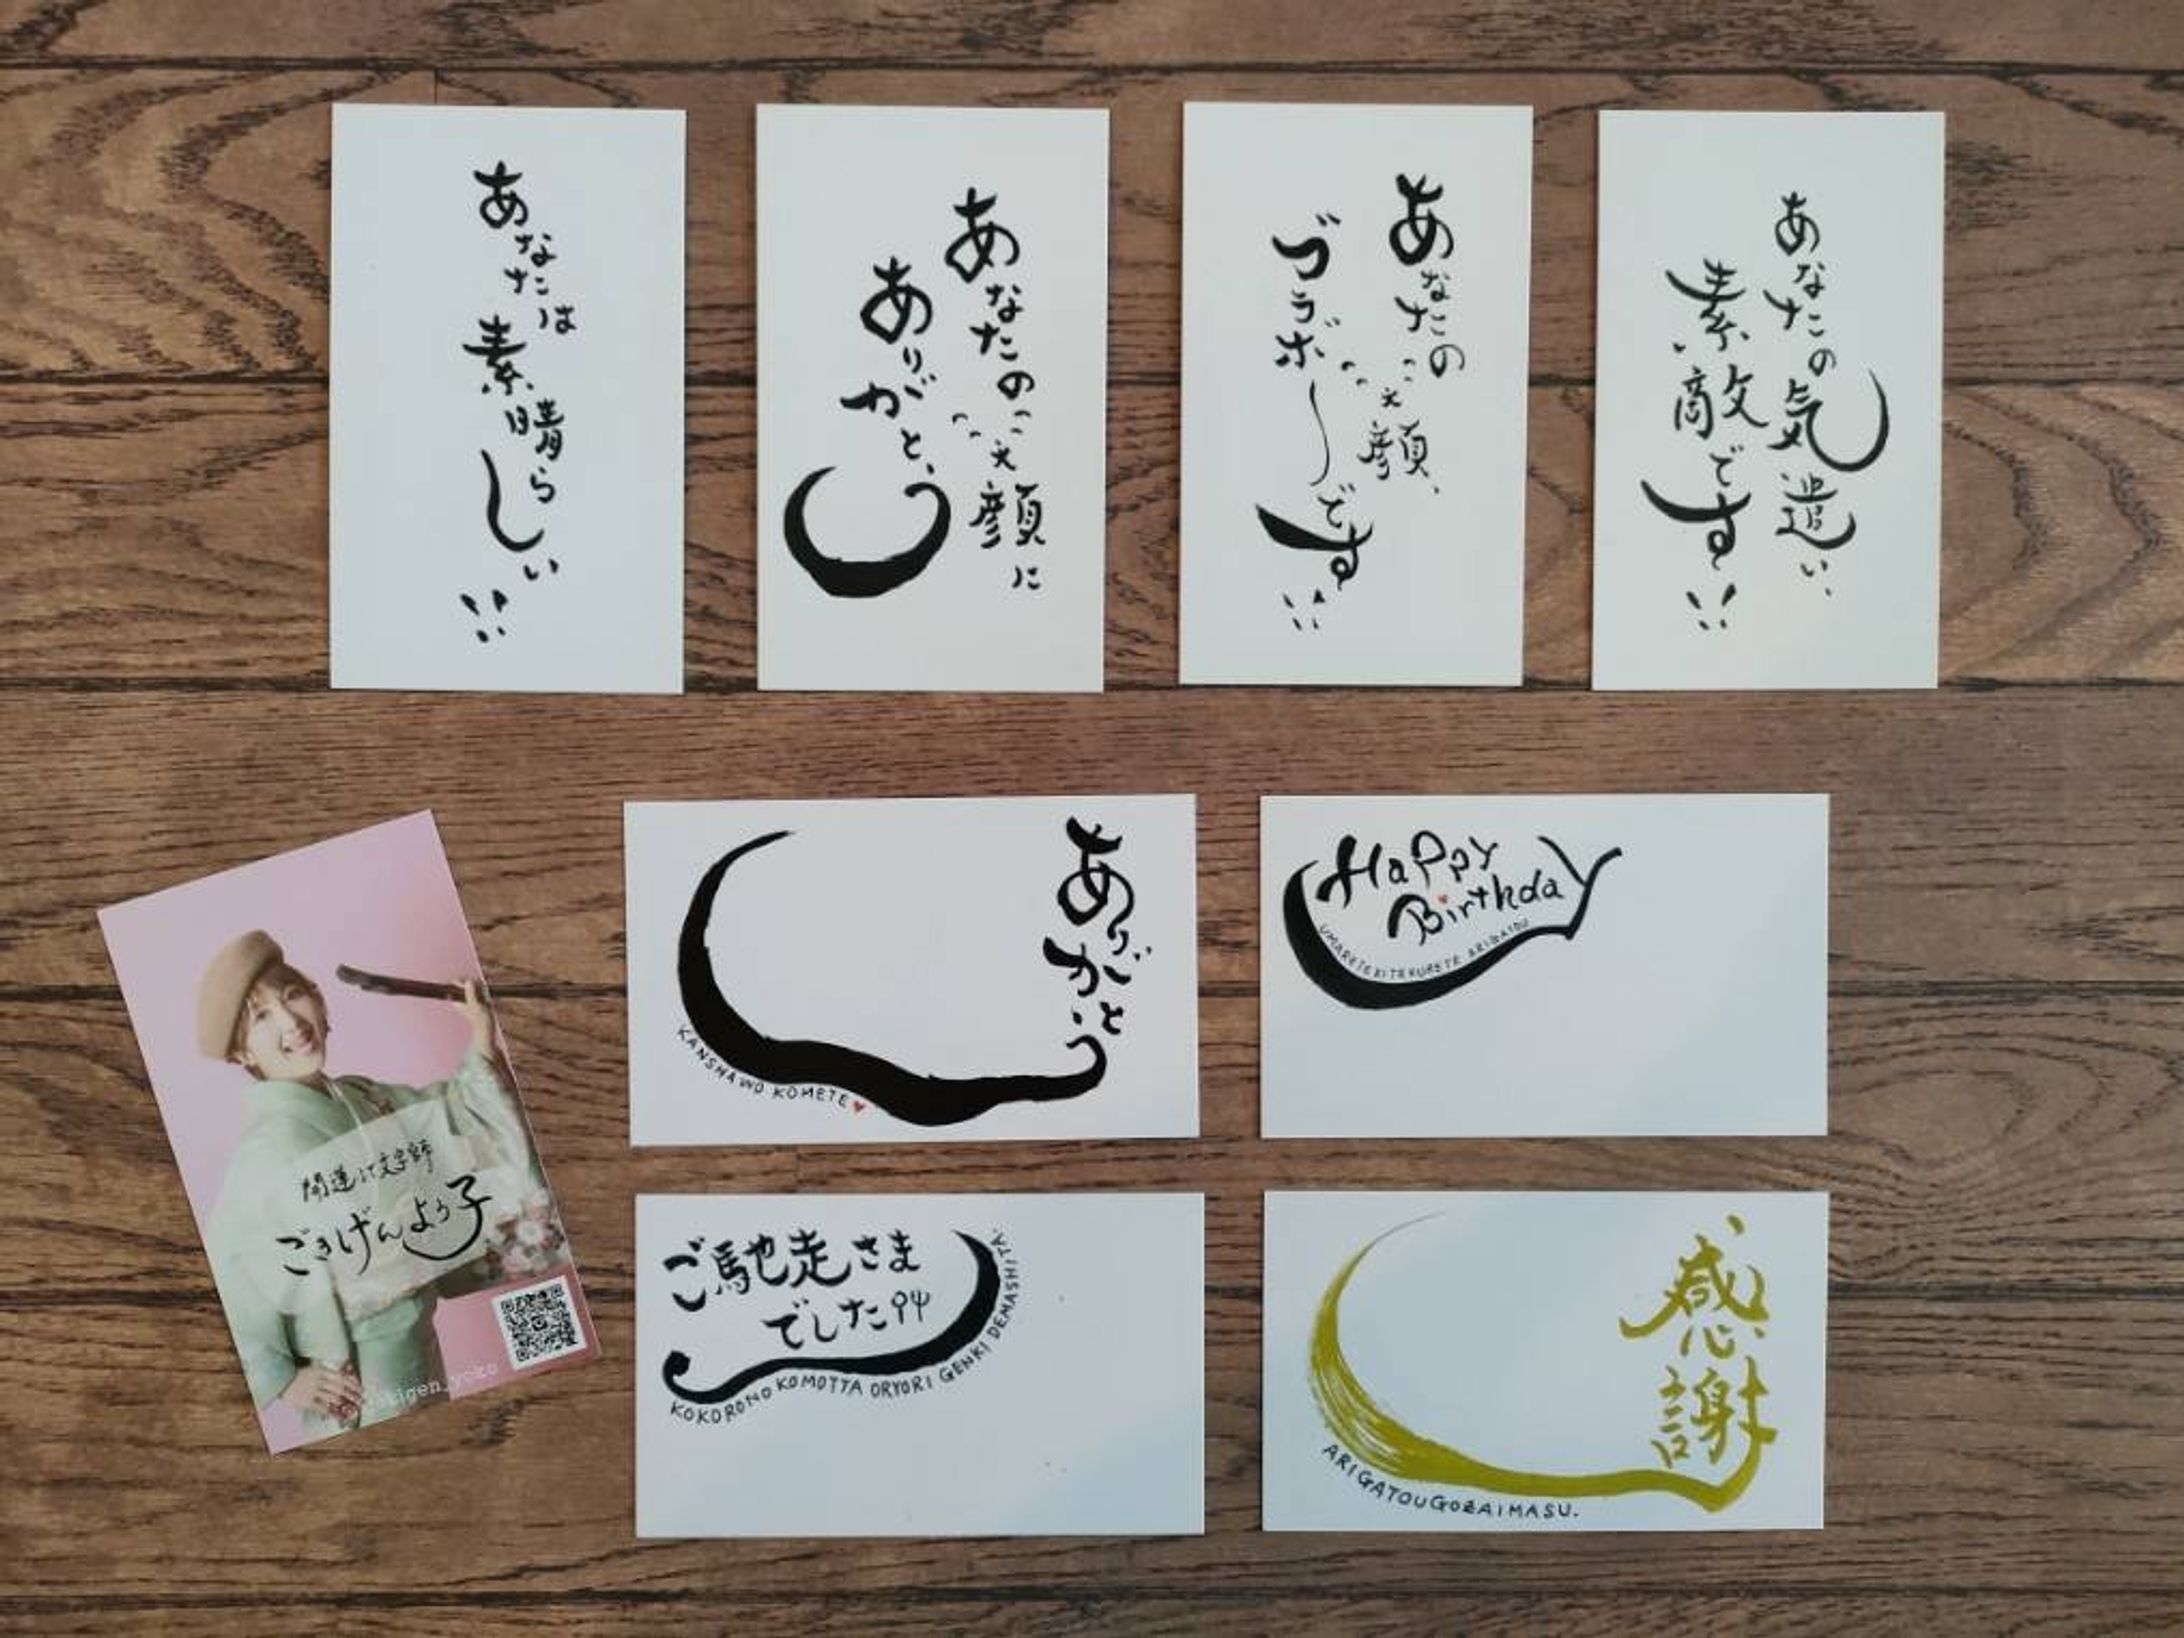 あなたは
素晴らしい!!
あなたの
笑顔に
ありがとう
あなたの
笑顔、
ブラボーです!!
あなたの
気遣い、
素敵です!!
ありがとう
KANSHA WO KOMETE
Happy
Birthday
UMARETEKITEKURETE ARIGATOU
開運いけ文字師
ごきげんよう子
ご馳走さま
でした
KOKORONO KOMOTTA ORYORI GENKI DEMASHITA.
感謝
ARIGATOUGOZAIMASU.